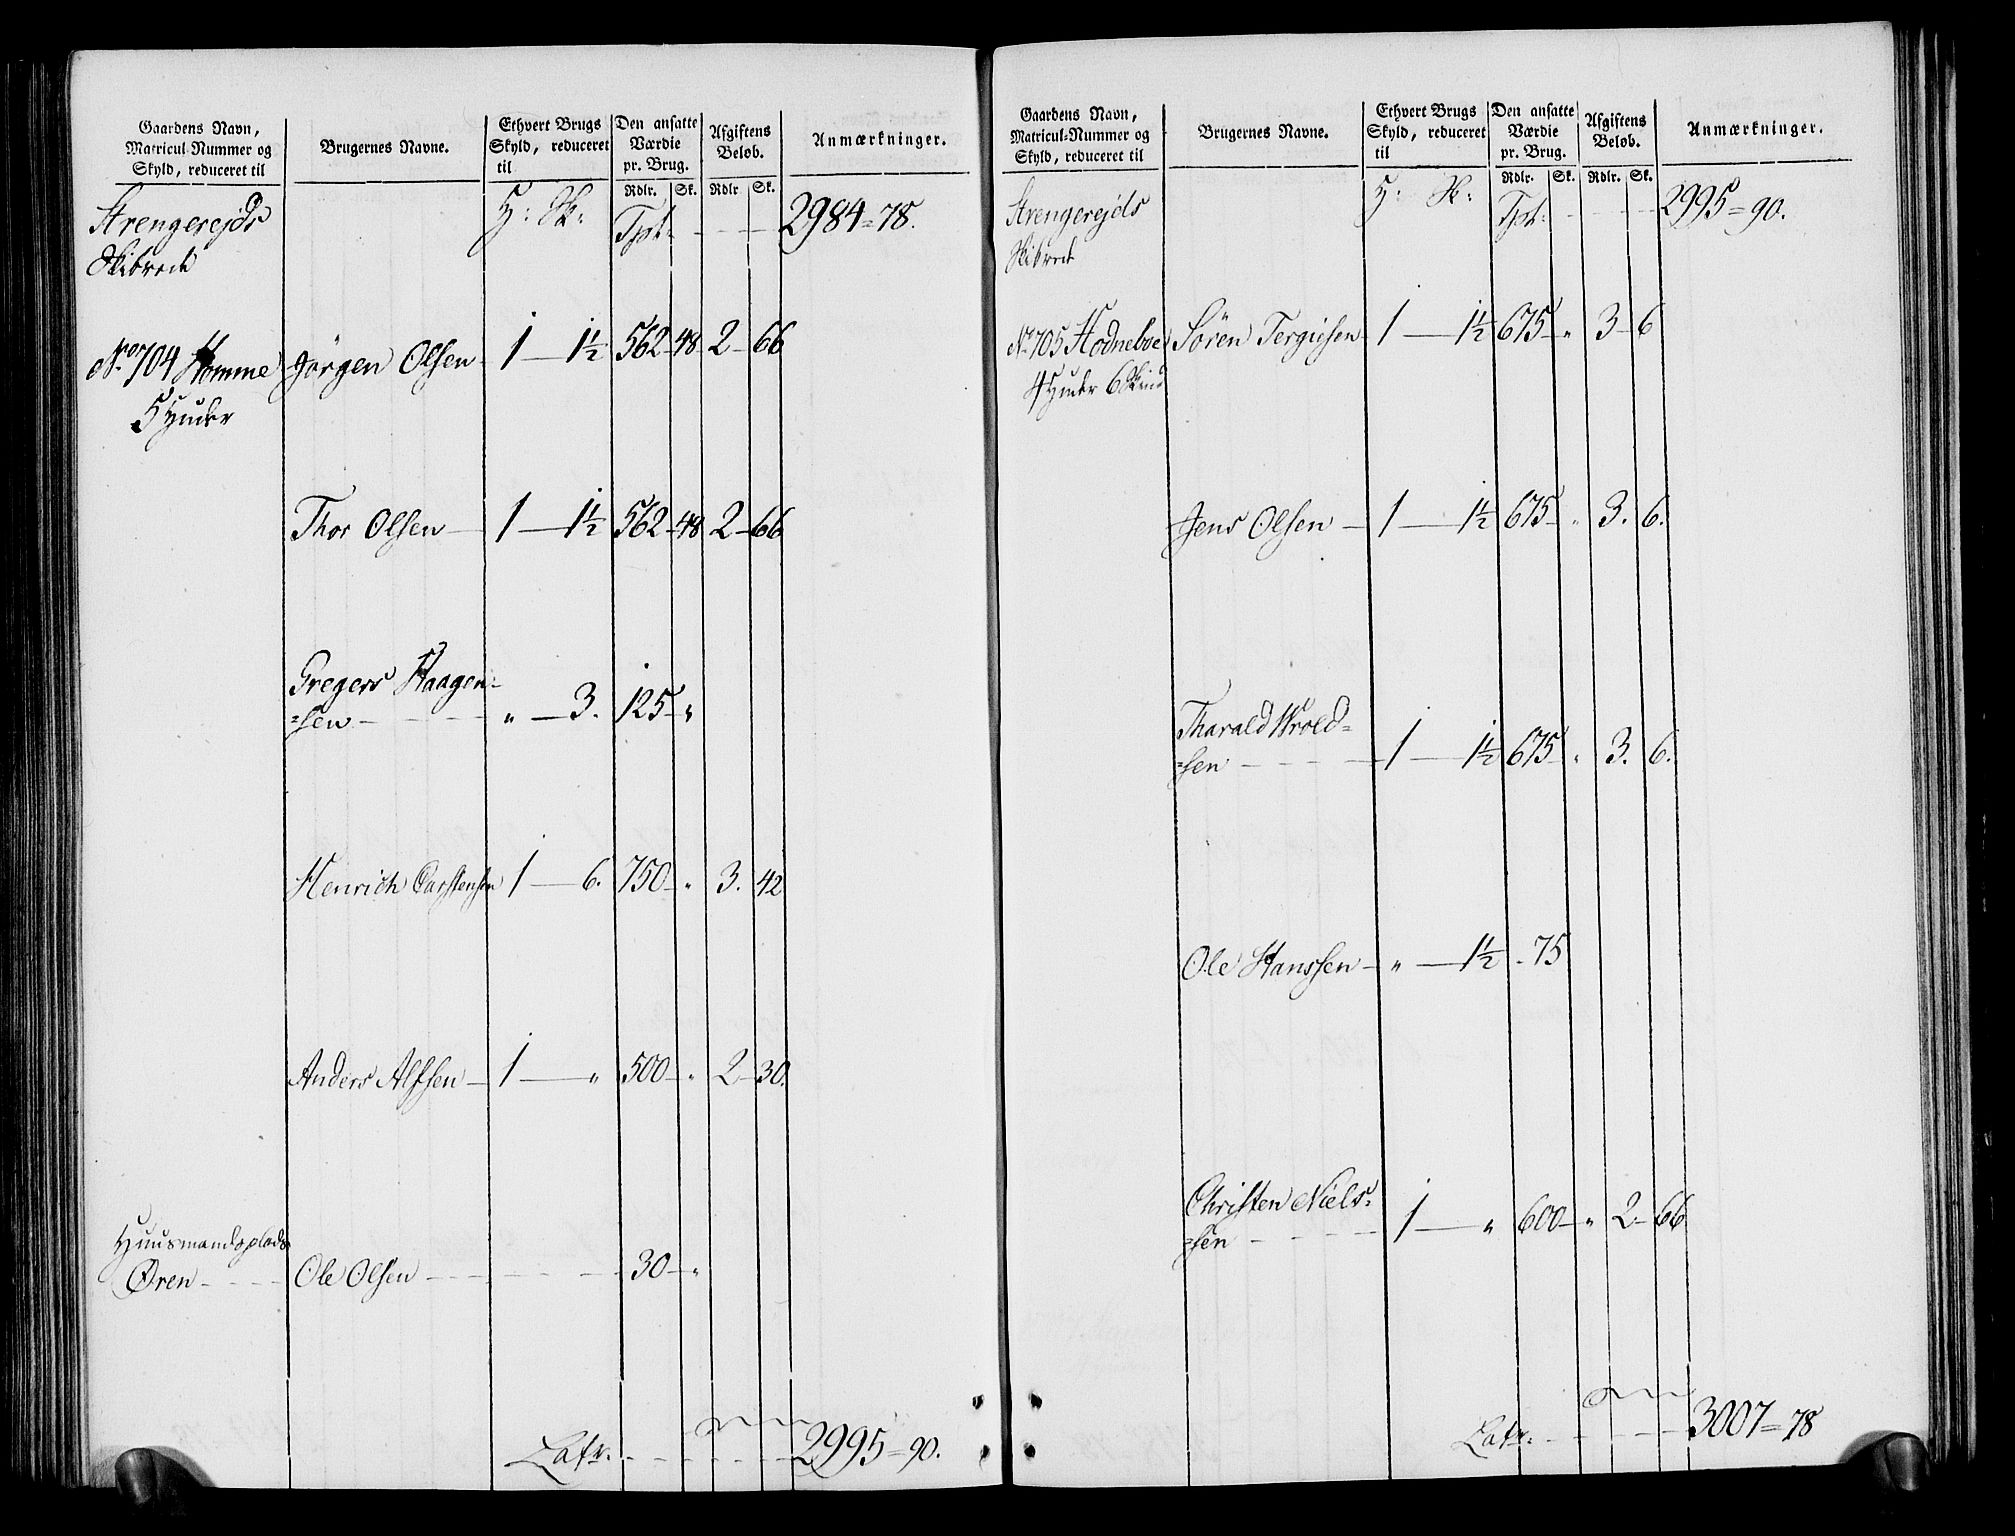 Gaardens Navn,
Matricul-Nummer og
Skyld, reduceret til
Brugernes Navne.
Ethvert Brugs
Skyld, reduceret
til
Den ansatte
Værdie
pr. Brug.
Afgiftens
Beløb.
Anmærkninger.
Rdlr. Sk. Rdlr Sk.
Strengerejds H: Sk: Tpt. 2984=78.
Skibrede
No. 704 Homme Jörgen Olsen 1 — 1½ 562 - 48 2 - 66
5 Huder
Thor Olsen — 1 — 1½ 562 - 48 2 - 66
Gregers Haagen-
=sen — „ — 3. 125 - „
Henrich Carstensen 1 — 6. 750 - „ 3. 42
Anders Alfsen — 1 — „ 500 - „ 2 - 30.
Huusmandsplads
Øren - - - Ole Olsen - - - 30 - „
Latr. - - - 2995=90.
Gaardens Navn,
Matricul-Nummer og
Skyld, reduceret til
Brugernes Navne.
Ethvert Brugs
Skyld, reduceret
til
Den ansatte
Værdie
pr. Brug.
Afgiftens
Beløb.
Anmærkninger.
Rdlr. Sk. Rdlr. Sk.
Strengerejds H: Sk: Tpt. 2995=90.
Skibrede
No. 705 Hodneboe Sören Tergiesen 1 — 1½ 675 - „ 3 - 6
4 Huder 6 Skind
Jens Olsen — 1 — 1½ 675 - „ 3. 6.
Tharald Wrold=
=sen - - - 1 — 1½ 675 - „ 3. 6.
Ole Hanssen — „ — 1½ - 75
Christen Niels=
=sen - - - 1 — „ 600 - „ 2 - 66
Latr. - - - 3007=78